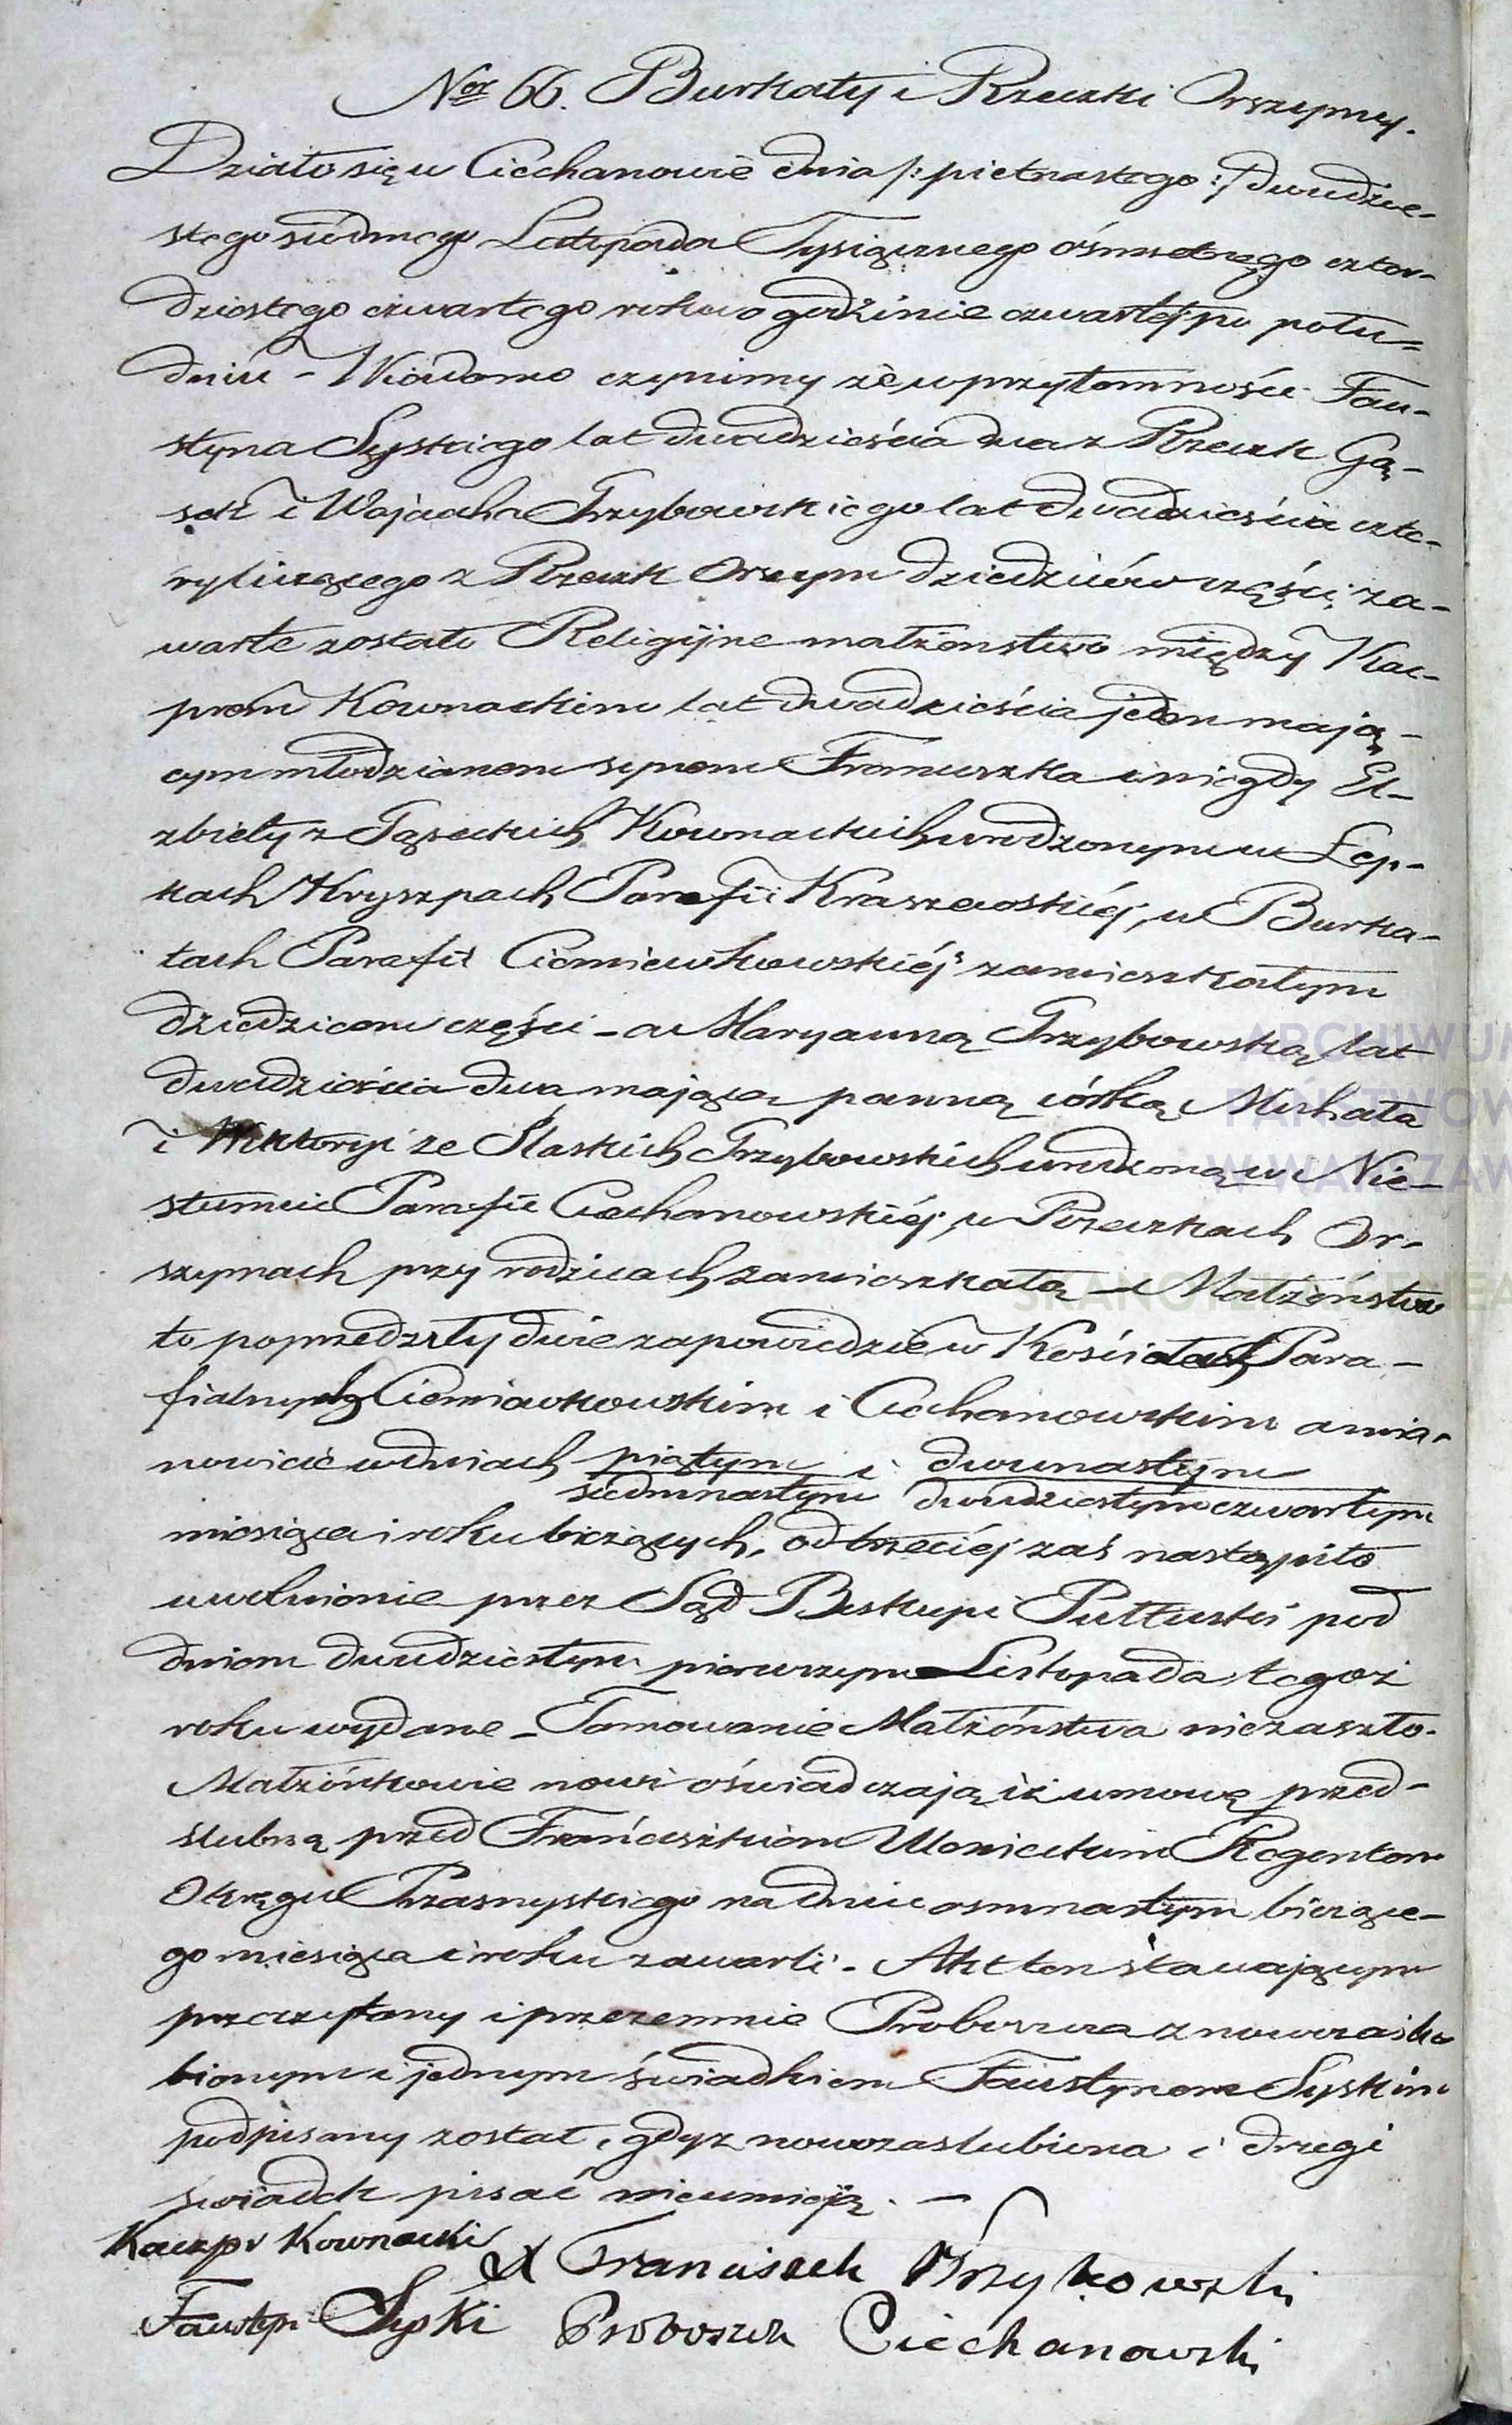 Nor 66. Burkaty i Rzeczki Orszymy.
Działo się w Ciechanowie dnia /: pietnastego :/ dwudzie-
stego siódmego Listopada Tysiącznego ośmsetnego czter-
dziestego czwartego roku o godzinie czwartej po połu-
dniu - Wiadomo czynimy że w przytomności Fau-
styna Syskiego lat dwadzieścia dwa z Rzeczk Gą-
sek i Wojciecha Grzybowskiego lat dwadzieścia czte-
ry liczącego z Rzeczk Orszym dziedziców części, za-
warte zostało Religijne małżeństwo między Kac-
prem Kownackim lat dwadzieścia jeden mają-
cym młodzianem synem Franciszka i niegdy El-
zbiety z Gąseckich Kownackich urodzonym w Łep-
kach Kryszpach Parafii Kraszewskiéj, w Burka-
tach Parafii Ciemniewkowskiéj zamieszkałym
dziedzicem części - a Maryanną Grzybowską lat
dwadzieścia dwa mającą panną córką Michała
i Wiktoryi ze Slaskich Grzybowskich urodzoną w Nie-
stumie Parafii Ciechanowskiéj, w Rzeczkach Or-
szymach przy rodzicach zamieszkałą - Małżeństwo
to poprzedziły dwie zapowiedzie w Kościołach Para-
fialnych Ciemniewkowskim i Ciechanowskim a mia-
nowicie w dniach piątym i dwunastym
siedmnastym dwudziestym czwartym
miesiąca i roku bieżących, od trzeciéj zaś nastąpiło
uwolnienie przez Sąd Biskupi Pułtuski pod
dniem dwudziestym pierwszym Listopada tegoż
roku wydane - Tamowanie Małżeństwa nie zaszło.
Małżonkowie nowi oświadczają iż umowę przed-
ślubną przed Franciszkiem Wonieckim Regentem
Okręgu Przasnyskiego na dniu osmnastym bieżące-
go miesiąca i roku zawarli. - Akt ten stawającym
przeczytany i przezemnie Proboszcza z nowozaślu
bionym i jednym świadkiem Faustynem Syskim
podpisany został, gdyż nowozaslubiona i drugi
swiadek pisać nieumieją. -
Kaczpr Kownacki
X Franciszek Grzybowski
Faustyn Syski Proboszcz Ciechanowski
ARCHIWUM
PAŃSTWOW
W WARSZAW